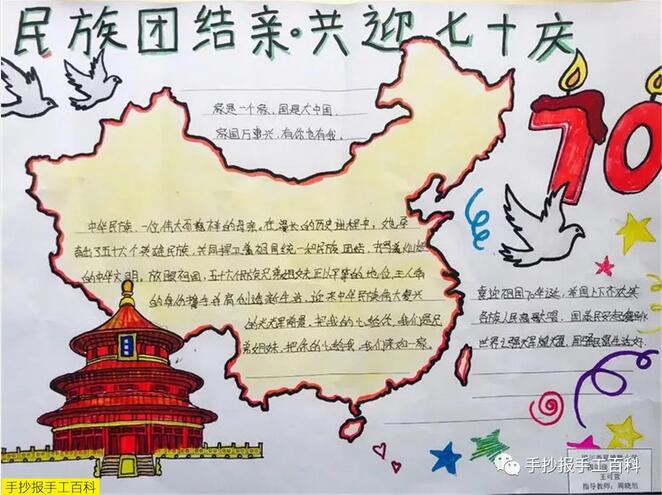 民族团结亲·共迎七十庆
70
家是一个家,国是大中国,
家国万事兴,有你也有我。
中华民族,一位伟大而慈祥的母亲。在漫长的历史进程中,她孕
育出了五十六个英雄民族,共同捍卫着祖国统一和民族团结,
的中华文明,放眼祖国,五十六个民族兄弟姐妹正以平等的地位,主人翁
的身份携手并肩创造新生活,近来中华民族伟大复兴
的光辉前景。把我的心给你,我们是兄
弟姐妹,把你的心给我,我们亲如一家。
喜迎祖国70华诞,举国上下齐欢笑
各族人民
世界之
手抄报手工百科
王可宜
指导教师:周晓旭
手抄报手工百科